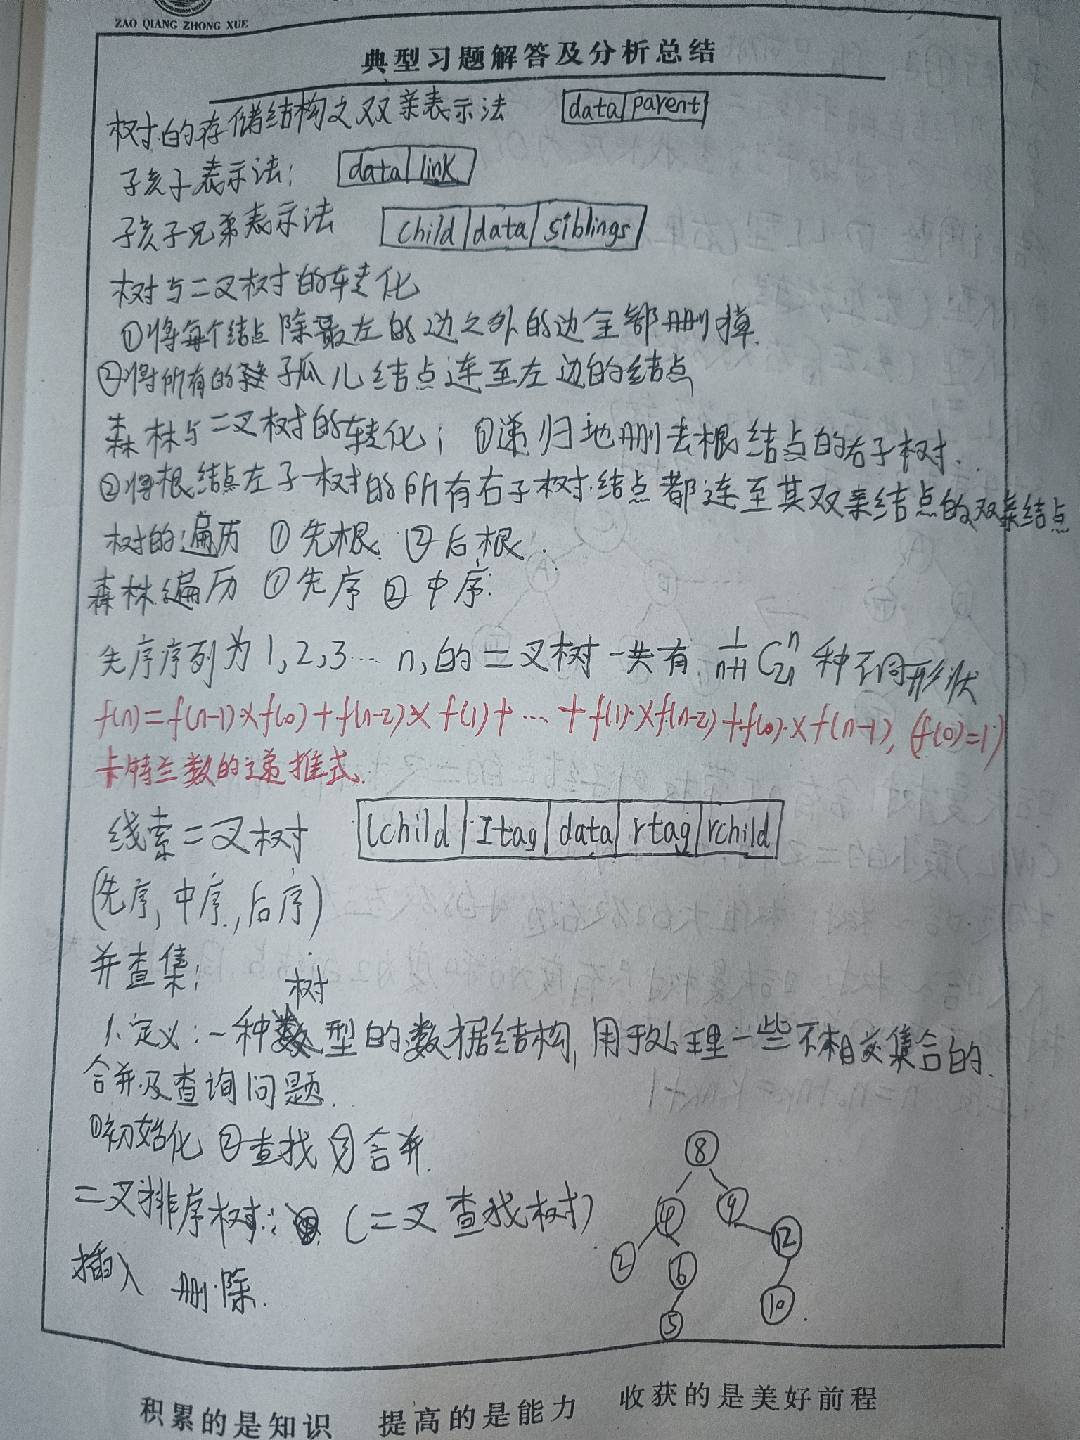 ZAO QIANG ZHONG XUE
典型习题解答及分析总结
树的存储结构之双亲表示法 data parent
孩子表示法: data link
孩子兄弟表示法 child data siblings
树与二叉树的转化
①将每个结点除最左的边之外的边全部删掉
②将所有的孤儿结点连至左边的结点
森林与二叉树的转化; ①递归地删去根结点的右子树.
②将根结点左子树的所有右子树结点都连至其双亲结点的双亲结点
树的遍历 ①先根 ②后根.
森林遍历 ①先序 ②中序.
先序序列为1,2,3… n,的二叉树一共有 1/(n+1) C_{2n}^{n} 种不同形状
f(n)=f(n-1)×f(0)+f(n-2)×f(1)+…+f(1)×f(n-2)+f(0)×f(n-1),(f(0)=1)
卡特兰数的递推式.
线索二叉树 lchild ltag data rtag rchild
(先序,中序,后序)
并查集:
1.定义:一种树型的数据结构,用于处理一些不相交集合的
合并及查询问题.
①初始化 ②查找 ③合并
二叉排序树: (二叉查找树)
插入 删除.
8
4 9
2 6 12
5 10
积累的是知识 提高的是能力 收获的是美好前程